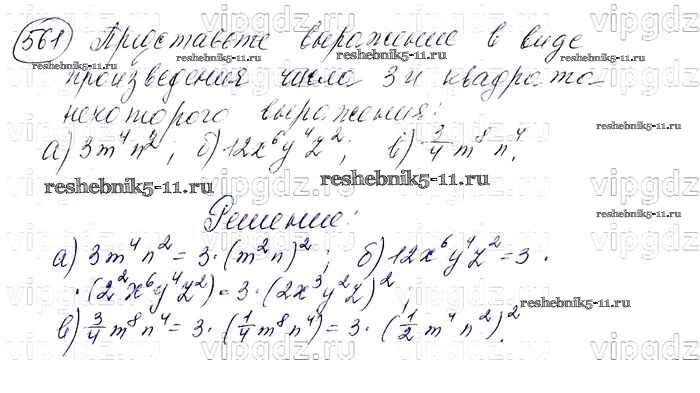 561 Представьте выражение в виде
произведения числа 3 и квадрата
некоторого выражения:
а) 3m⁴n²; б) 12x⁶y⁴z²; в) 3/4 m⁸n⁴.
Решение:
а) 3m⁴n² = 3·(m²n)²; б) 12x⁶y⁴z² = 3·
·(2²x⁶y⁴z²) = 3·(2x³y²z)²;
в) 3/4 m⁸n⁴ = 3·(1/4 m⁸n⁴) = 3·(1/2 m⁴n²)².
vipgdz.ru
reshebnik5-11.ru